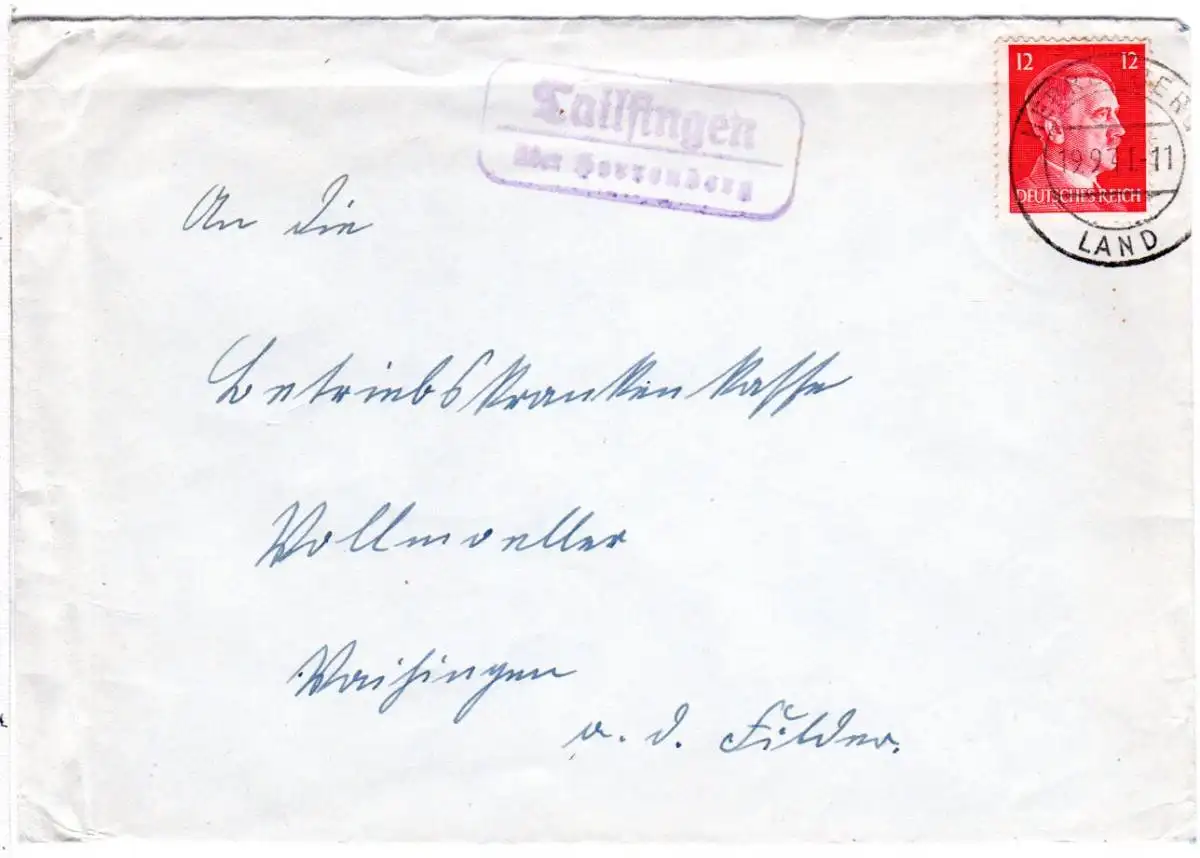 Tailfingen
über Herrenberg
12 12
DEUTSCHES REICH
HERRENBERG
19.9.41.-11
LAND
An die
Betriebskrankenkasse
Vollmoeller
Vaihingen
a. d. Fildern.